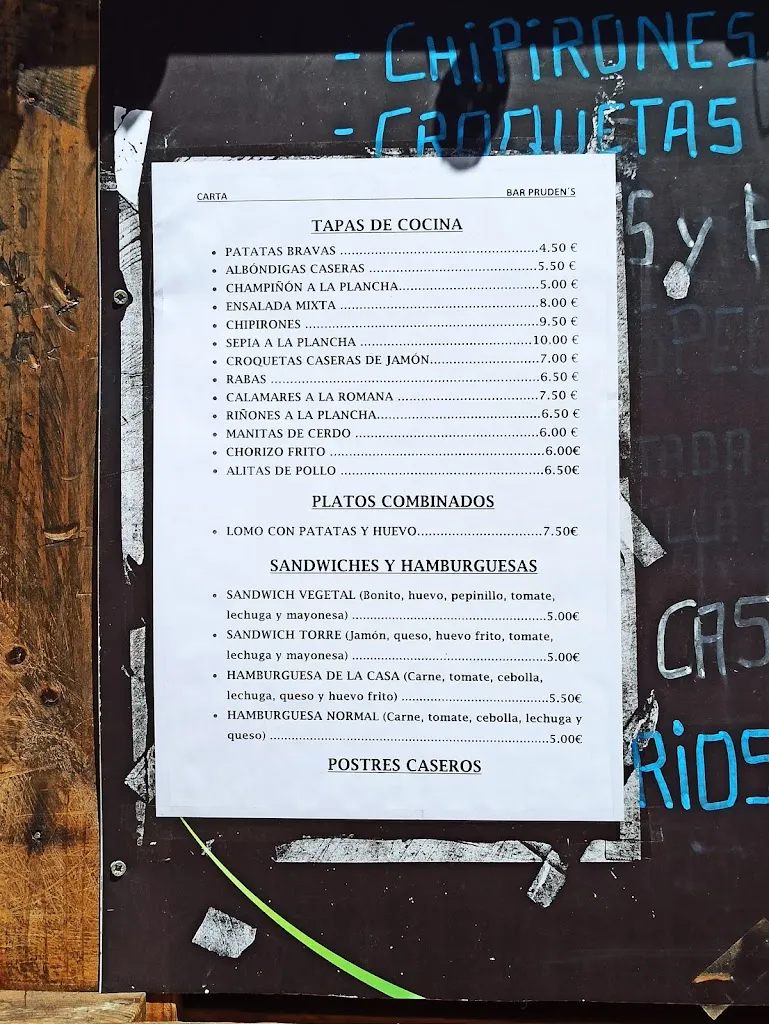 - CHiPiRONES
- CROQUETAS
CARTA BAR PRUDEN´S
TAPAS DE COCINA
• PATATAS BRAVAS ..........................................4.50 €
• ALBÓNDIGAS CASERAS ....................................5.50 €
• CHAMPIÑÓN A LA PLANCHA..............................5.00 €
• ENSALADA MIXTA ..........................................8.00 €
• CHIPIRONES .................................................9.50 €
• SEPIA A LA PLANCHA .....................................10.00 €
• CROQUETAS CASERAS DE JAMÓN........................7.00 €
• RABAS .........................................................6.50 €
• CALAMARES A LA ROMANA ..............................7.50 €
• RIÑONES A LA PLANCHA...................................6.50 €
• MANITAS DE CERDO .......................................6.00 €
• CHORIZO FRITO .............................................6.00€
• ALITAS DE POLLO ...........................................6.50€
PLATOS COMBINADOS
• LOMO CON PATATAS Y HUEVO...........................7.50€
SANDWICHES Y HAMBURGUESAS
• SANDWICH VEGETAL (Bonito, huevo, pepinillo, tomate,
lechuga y mayonesa) ..........................................5.00€
• SANDWICH TORRE (Jamón, queso, huevo frito, tomate,
lechuga y mayonesa) ..........................................5.00€
• HAMBURGUESA DE LA CASA (Carne, tomate, cebolla,
lechuga, queso y huevo frito) ................................5.50€
• HAMBURGUESA NORMAL (Carne, tomate, cebolla, lechuga y
queso) ............................................................5.00€
POSTRES CASEROS
S y H
CAS
RiOS